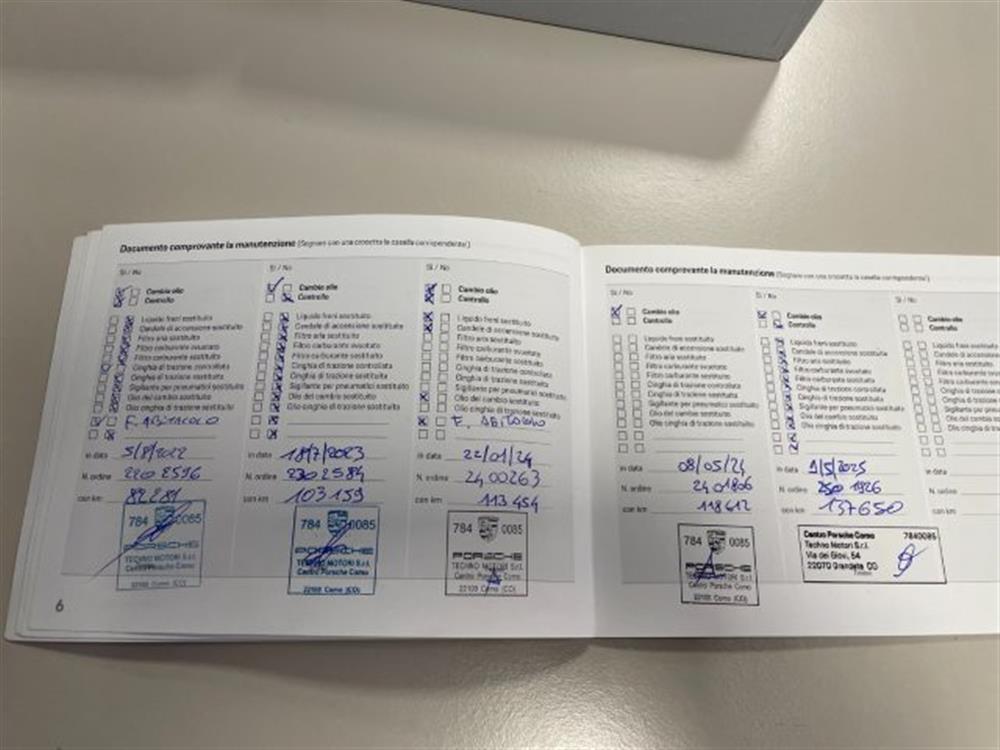 Documento comprovante la manutenzione (Segnare con una crocetta la casella corrispondente)
Si / No
Cambio olio
Controllo
Liquido freni sostituito
Candele di accensione sostituite
Filtro aria sostituito
Filtro carburante svuotato
Filtro carburante sostituito
Cinghia di trazione controllata
Cinghia di trazione sostituita
Sigillante per pneumatici sostituito
Olio del cambio sostituito
Olio cinghia di trazione sostituito
F. ABITACOLO
in data 5/8/2022
N. ordine 220 2596
con km 82281
784 0085
PORSCHE
TECHNO MOTORI S.r.l.
Centro Porsche Como
22100 Como (CO)
Si / No
Cambio olio
Controllo
Liquido freni sostituito
Candele di accensione sostituite
Filtro aria sostituito
Filtro carburante svuotato
Filtro carburante sostituito
Cinghia di trazione controllata
Cinghia di trazione sostituita
Sigillante per pneumatici sostituito
Olio del cambio sostituito
Olio cinghia di trazione sostituito
18/7/2023
230 2584
103159
784 0085
PORSCHE
TECHNO MOTORI S.r.l.
Centro Porsche Como
22100 Como (CO)
Si / No
Cambio olio
Controllo
Liquido freni sostituito
Candele di accensione sostituite
Filtro aria sostituito
Filtro carburante svuotato
Filtro carburante sostituito
Cinghia di trazione controllata
Cinghia di trazione sostituita
Sigillante per pneumatici sostituito
Olio del cambio sostituito
Olio cinghia di trazione sostituito
in data 22/01/24
N. ordine 2400263
con km 113454
784 0085
PORSCHE
TECHNO MOTORI S.r.l.
Centro Porsche Como
22100 Como (CO)
6
Documento comprovante la manutenzione (Segnare con una crocetta la casella corrispondente)
Si / No
Cambio olio
Controllo
Liquido freni sostituito
Candele di accensione sostituite
Filtro aria sostituito
Filtro carburante svuotato
Filtro carburante sostituito
Cinghia di trazione controllata
Cinghia di trazione sostituita
Sigillante per pneumatici sostituito
Olio del cambio sostituito
Olio cinghia di trazione sostituito
in data 08/05/24
N. ordine 2401806
con km 118612
784 0085
PORSCHE
Centro Porsche Como
22100 Como (CO)
Si / No
Cambio olio
Controllo
Liquido freni sostituito
Candele di accensione sostituite
Filtro aria sostituito
Filtro carburante svuotato
Filtro carburante sostituito
Cinghia di trazione controllata
Cinghia di trazione sostituita
Sigillante per pneumatici sostituito
Olio del cambio sostituito
Olio cinghia di trazione sostituito
in data 9/5/2025
N. ordine 250 1926
con km 137650
Centro Porsche Como 7840085
Techno Motori S.r.l.
Via dei Giovi, 54
22070 Grandate CO
Si / No
Cambio olio
Controllo
in data
N. ordine
con km